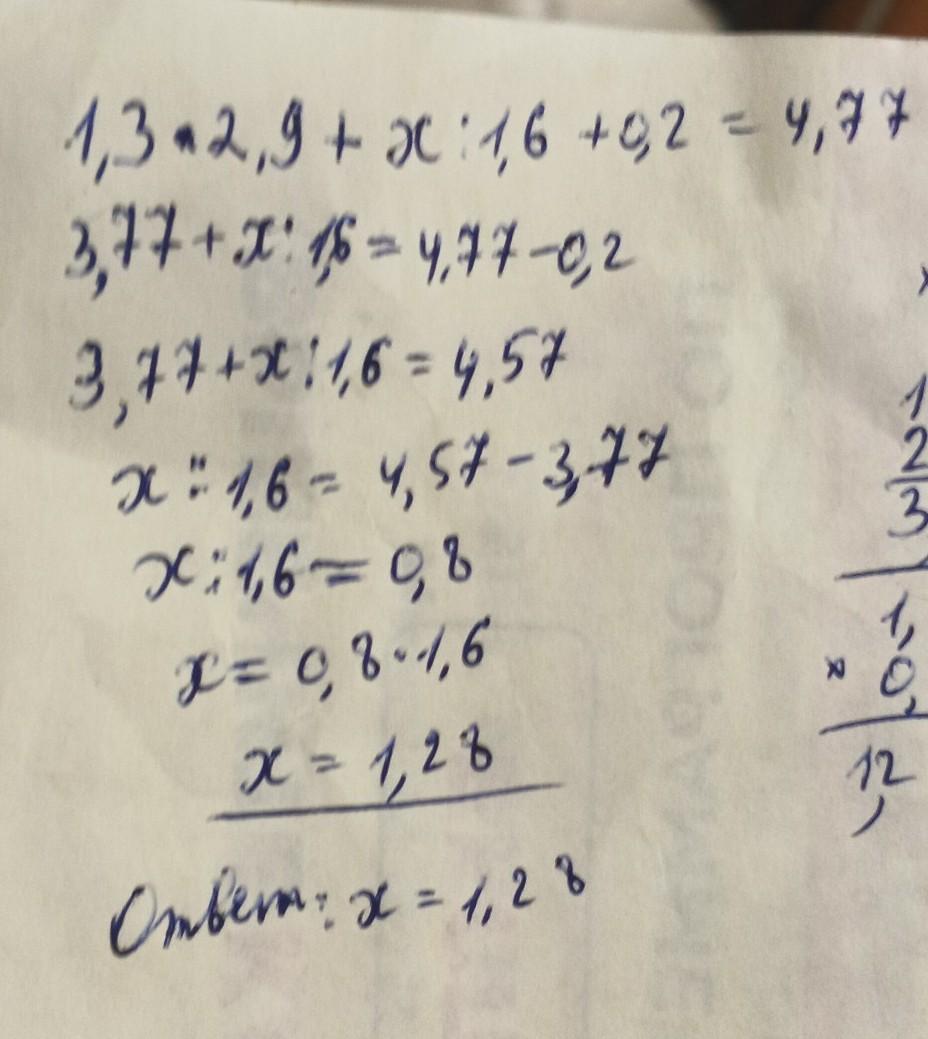 1,3 · 2,9 + x : 1,6 + 0,2 = 4,77
3,77 + x : 1,6 = 4,77 - 0,2
3,77 + x : 1,6 = 4,57
x : 1,6 = 4,57 - 3,77
x : 1,6 = 0,8
x = 0,8 · 1,6
x = 1,28
Ответ: x = 1,28
1
2
3
1,
× 0,
12
,